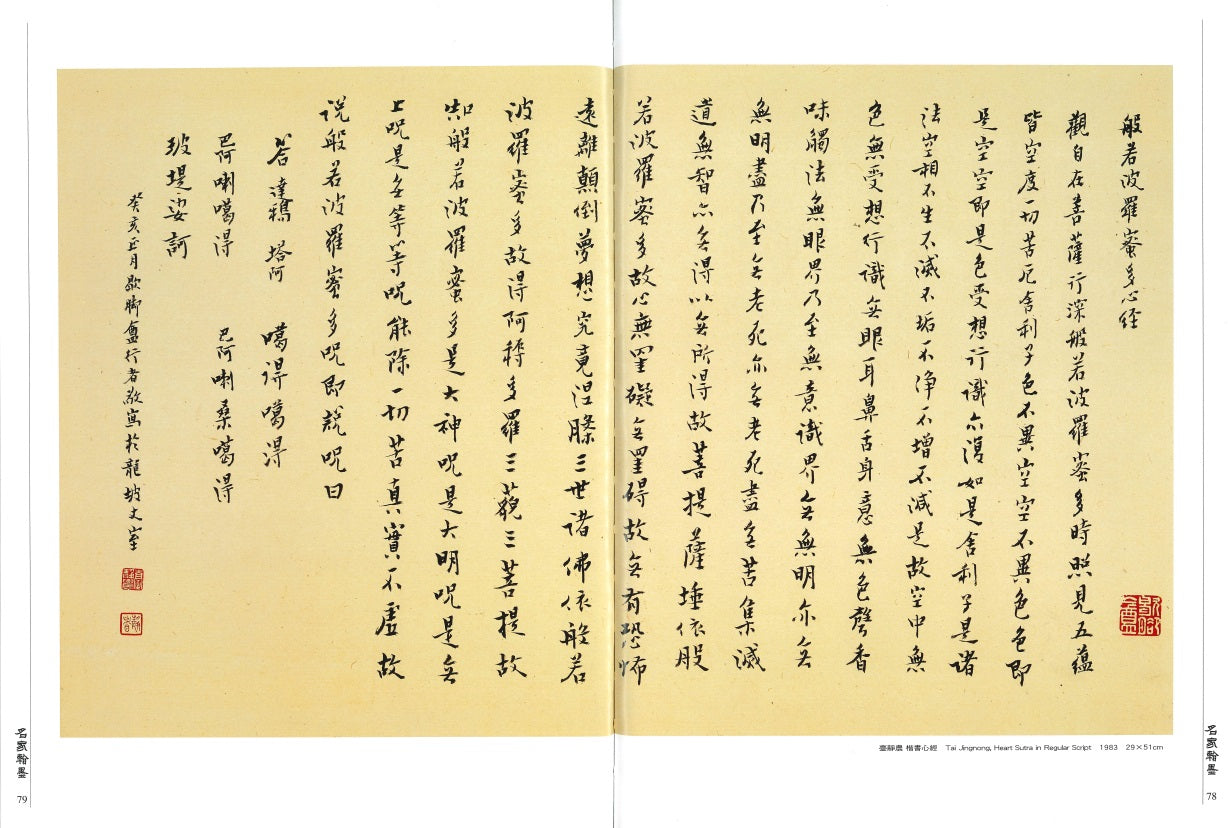 般若波羅蜜多心經
觀自在菩薩行深般若波羅蜜多時照見五蘊
皆空度一切苦厄舍利子色不異空空不異色色即
是空空即是色受想行識亦復如是舍利子是諸
法空相不生不滅不垢不淨不增不減是故空中無
色無受想行識無眼耳鼻舌身意無色聲香
味觸法無眼界乃至無意識界無無明亦無
無明盡乃至無老死亦無老死盡無苦集滅
道無智亦無得以無所得故菩提薩埵依般
若波羅蜜多故心無罣礙無罣碍故無有恐怖
遠離顛倒夢想究竟涅槃三世諸佛依般若
波羅蜜多故得阿耨多羅三藐三菩提故
知般若波羅蜜多是大神咒是大明咒是無
上咒是無等等咒能除一切苦真實不虛故
說般若波羅蜜多咒即說咒曰
答達鴉 塔阿 噶得噶得
巴阿喇噶得 巴阿喇桑噶得
玻堤娑訶
癸亥正月歇脚盦行者敬寫於龍坡丈室
歇脚盦
臺靜農 楷書心經 Tai Jingnong, Heart Sutra in Regular Script 1983 29×51cm
名家翰墨
78
名家翰墨
79